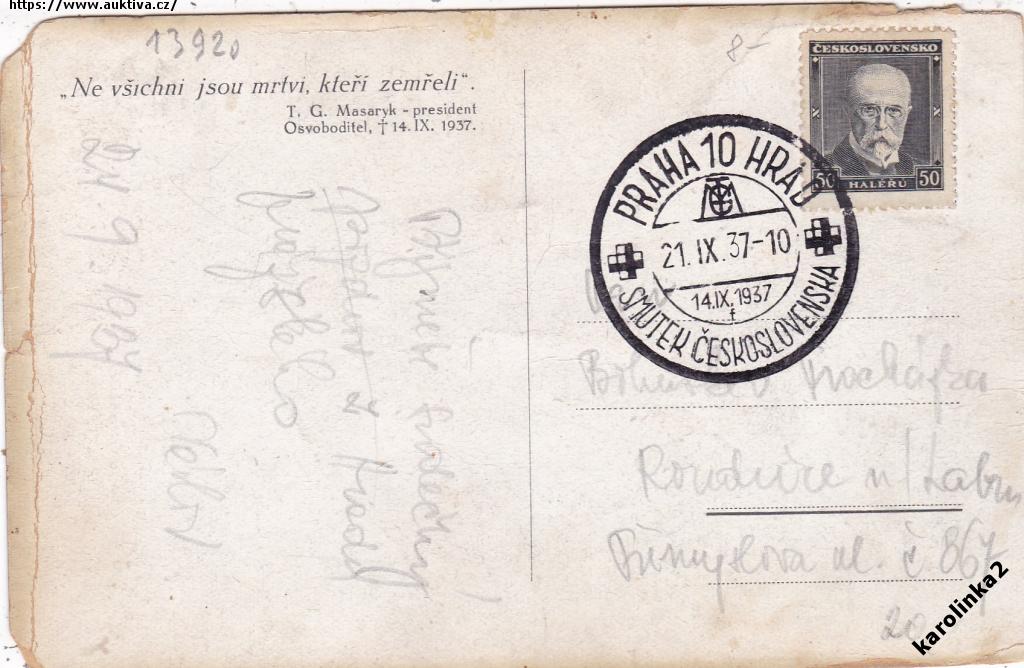 https://www.auktiva.cz/
13920
8-
„Ne všichni jsou mrtvi, kteří zemřeli“.
T. G. Masaryk - president
Osvoboditel, † 14. IX. 1937.
ČESKOSLOVENSKO
50 HALÉRŮ 50
PRAHA 10 HRAD
21. IX. 37-10
14.IX.1937
f
SMUTEK ČESKOSLOVENSKA
21 9. 1937
srdečný
pozdrav z
Procházka
Roudnice n/Labem
ul. č. 867
20
karolinka2